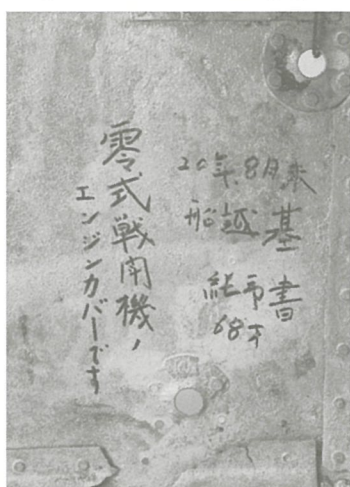 20年.8月末
船越基
書
68才
零式戦闘機ノ
エンジンカバーです